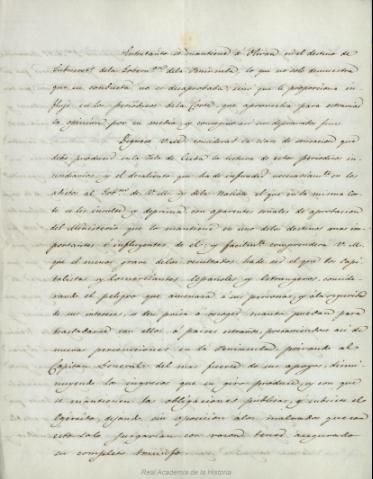 Entretanto se mantiene á Olivan en el destino de
de la Gobern.on de la Peninsula, lo que no solo demuestra
que su conducta no es desaprobada, sino que le proporciona in-
flujo en los periódicos de la Corte, que aprovecha para estraviar
la opinion por su medio, y conseguir así su depravado fin.
Dignese V.M. considerar la clase de sensacion que
debe producir en la Isla de Cuba la lectura de estos periodicos in-
cendiarios, y el desaliento que ha de infundir necesariam.te en los
adictos al Gob.no de V.M. y de la Nacion el que en la misma Cor-
te se les insulte y deprima con aparentes señales de aprobacion
del Ministerio que lo mantiene en uno de los destinos mas im-
portantes é influyentes de él; y facilm.te comprenderá V.M.
que el menos grave de los resultados ha de ser el que los Capi-
talistas y Comerciantes Españoles y Estrangeros, conside-
rando el peligro que amenaza á sus personas, y á la seguridad
de sus intereses, se den prisa á recoger cuanto puedan para
trasladarse con ellos á paises estraños, precaviendose así de
nuevas persecuciones en la Peninsula, privando al
Capitan General del mas fuerte de sus apoyos, dismi-
nuyendo los ingresos que su giro produce, y con que
se mantienen las obligaciones publicas, y subsiste el
Egército, dejando sin oposicion á los malvados que con
esto solo juzgarian con razon tener asegurado
su completo triunfo.
Real Academia de la Historia